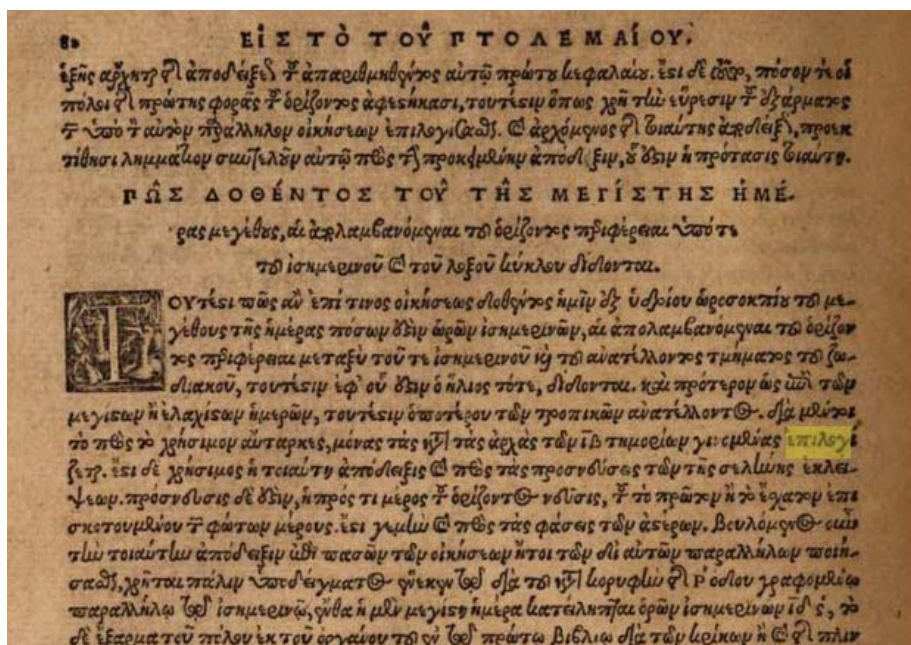 80 ΕἸΣ ΤῸ ΤΟΥ͂ ΠΤΟΛΕΜΑΊΟΥ.
ἑξῆς ἀποδείξεως τοῦ ἀπαριθμηθέντος αὐτῷ πρώτου κεφαλαίου. ἔστι δὲ πόσον τε οἱ
πόλοι τῆς πρώτης φορᾶς τοῦ ὁρίζοντος ἀφεστήκασι, τουτέστιν ὅπως χρὴ τὴν εὕρεσιν τοῦ ἐξάρματος
τῶν ὑπὸ τὸν αὐτὸν παράλληλον οἰκήσεων ἐπιλογίζεσθαι. καὶ ἀρχόμενος τῆς τοιαύτης ἀποδείξεως, προεκ
τίθησι λημμάτιον συντελοῦν αὐτῷ πρὸς τὴν προκειμένην ἀπόδειξιν, οὗ ἐστιν ἡ πρότασις τοιαύτη.
ΠΩ͂Σ ΔΟΘΈΝΤΟΣ ΤΟΥ͂ ΤΗ͂Σ ΜΕΓΊΣΤΗΣ ἩΜΈ-
ρας μεγέθους, αἱ ἀπολαμβανόμεναι τοῦ ὁρίζοντος περιφέρειαι ὑπό τε
τοῦ ἰσημερινοῦ καὶ τοῦ λοξοῦ κύκλου δίδονται.
ΤΟΥτέστι πῶς ἂν ἐπί τινος οἰκήσεως δοθέντος ἡμῖν ἐξ ὑδρίου ὡροσκοπίου τοῦ με-
γέθους τῆς ἡμέρας πόσων ἐστὶν ὡρῶν ἰσημερινῶν, αἱ ἀπολαμβανόμεναι τοῦ ὁρίζον
τος περιφέρειαι μεταξὺ τοῦ τε ἰσημερινοῦ καὶ τοῦ ἀνατέλλοντος τμήματος τοῦ ζω-
διακοῦ, τουτέστιν ἐφ' οὗ ἐστιν ὁ ἥλιος τότε, δίδονται. καὶ πρότερον ὡς ἐπὶ τῶν
μεγίστων ἢ ἐλαχίστων ἡμερῶν, τουτέστιν ὁποτέρου τῶν τροπικῶν ἀνατέλλοντος. διὰ μέντοι
τὸ πρὸς τὸ χρήσιμον αὔταρκες, μόνας τὰς κατὰ τὰς ἀρχὰς τῶν ιβ τημορίων γινομένας ἐπιλογί
ζεται. ἔστι δὲ χρήσιμος ἡ τοιαύτη ἀπόδειξις καὶ πρὸς τὰς προσνεύσεις τῶν τῆς σελήνης ἐκλεί-
ψεων. πρόσνευσις δέ ἐστιν, ἡ πρός τι μέρος τοῦ ὁρίζοντος νεῦσις, τοῦ τὸ πρῶτον ἢ τὸ ἔσχατον ἐπι
σκοτουμένου τῶν φώτων μέρους. ἔστι γε μὴν καὶ πρὸς τὰς φάσεις τῶν ἀστέρων. Βουλόμενος οὖν
τὴν τοιαύτην ἀπόδειξιν ἐπὶ πασῶν τῶν οἰκήσεων ἤτοι τῶν δι' αὐτῶν παραλλήλων ποιή-
σασθαι, χρῆται πάλιν ὑποδείγματος ἕνεκεν τῷ διὰ τοῦ κατὰ κορυφὴν τῆς Ρόδου γραφομένῳ
παραλλήλῳ τῷ ἰσημερινῷ, ἔνθα ἡ μὲν μεγίστη ἡμέρα κατείληπται ὁρῶν ἰσημερινῶν ιδ ς, τὸ
δὲ ἔξαρμα τοῦ πόλου ἐκ τοῦ ὀργάνου τοῦ ἐν τῷ πρώτῳ Βιβλίῳ διὰ τῶν κρίκων ἢ καὶ τῆς πλιν